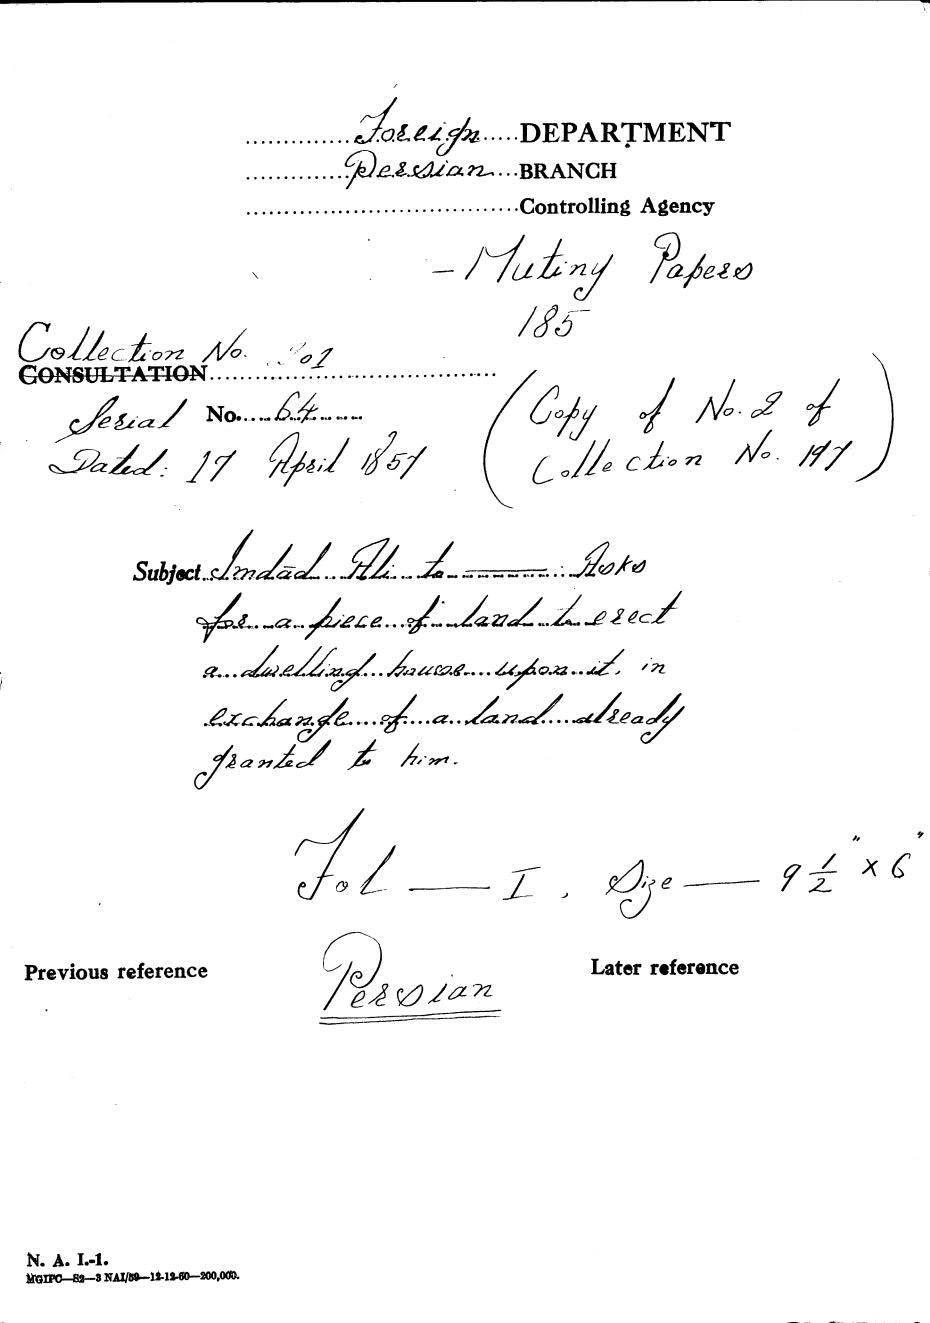 Foreign DEPARTMENT
Persian BRANCH
Controlling Agency
- Mutiny Papers
185
Collection No. 201
CONSULTATION
Serial No. 64
Dated: 17 April 1857
(Copy of No. 2 of
Collection No. 197)
Subject Imdād Ali to ——— Asks
for a piece of land to erect
a dwelling house upon it, in
exchange of a land already
granted to him.
Fol — I, Size — 9 1/2" x 6"
Previous reference
Persian
Later reference
N. A. I.-1.
MGIPC—S2—3 NAI/59—12-12-60—200,000.